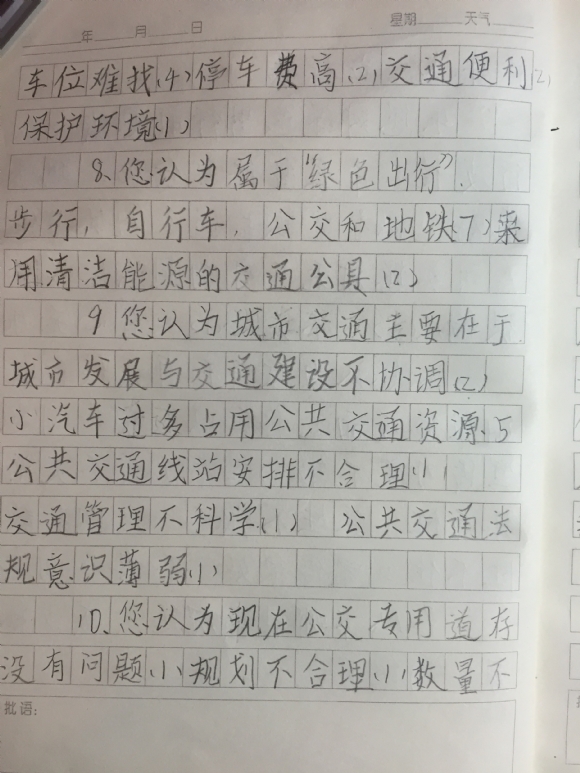 年 月 日 星期 天气
车位难找(4)停车费高(2)交通便利(2)
保护环境(1)
8、您认为属于“绿色出行”.
步行,自行车,公交和地铁(7)采
用清洁能源的交通公具(2)
9您认为城市交通主要在于
城市发展与交通建设不协调(2)
小汽车过多占用公共交通资源、5
公共交通线站安排不合理(1)
交通管理不科学(1) 公共交通法
规意识薄弱(1)
10、您认为现在公交专用道存
没有问题(1)规划不合理(1)数量不
批语: